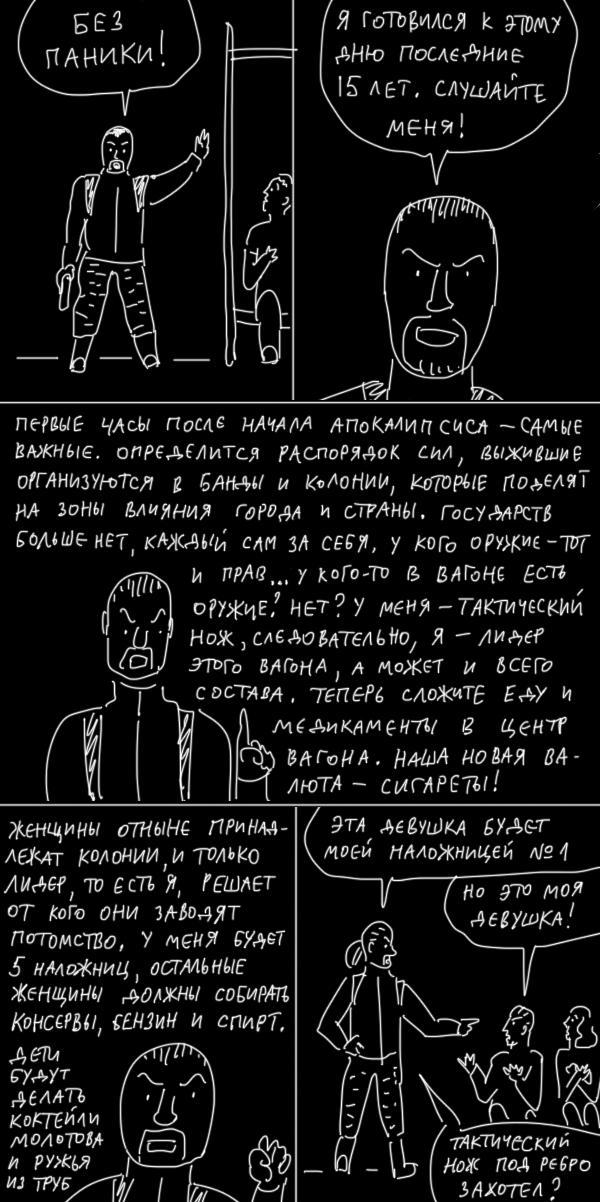 БЕЗ
ПАНИКИ!
Я ГОТОВИЛСЯ К ЭТОМУ
ДНЮ ПОСЛЕДНИЕ
15 ЛЕТ. СЛУШАЙТЕ
МЕНЯ!
ПЕРВЫЕ ЧАСЫ ПОСЛЕ НАЧАЛА АПОКАЛИПСИСА – САМЫЕ
ВАЖНЫЕ. ОПРЕДЕЛИТСЯ РАСПОРЯДОК СИЛ, ВЫЖИВШИЕ
ОРГАНИЗУЮТСЯ В БАНДЫ И КОЛОНИИ, КОТОРЫЕ ПОДЕЛЯТ
НА ЗОНЫ ВЛИЯНИЯ ГОРОДА И СТРАНЫ. ГОСУДАРСТВ
БОЛЬШЕ НЕТ, КАЖДЫЙ САМ ЗА СЕБЯ, У КОГО ОРУЖИЕ – ТОТ
И ПРАВ... У КОГО-ТО В ВАГОНЕ ЕСТЬ
ОРУЖИЕ? НЕТ? У МЕНЯ – ТАКТИЧЕСКИЙ
НОЖ, СЛЕДОВАТЕЛЬНО, Я – ЛИДЕР
ЭТОГО ВАГОНА, А МОЖЕТ И ВСЕГО
СОСТАВА. ТЕПЕРЬ СЛОЖИТЕ ЕДУ И
МЕДИКАМЕНТЫ В ЦЕНТР
ВАГОНА. НАША НОВАЯ ВА-
ЛЮТА – СИГАРЕТЫ!
ЖЕНЩИНЫ ОТНЫНЕ ПРИНАД-
ЛЕЖАТ КОЛОНИИ, И ТОЛЬКО
ЛИДЕР, ТО ЕСТЬ Я, РЕШАЕТ
ОТ КОГО ОНИ ЗАВОДЯТ
ПОТОМСТВО. У МЕНЯ БУДЕТ
5 НАЛОЖНИЦ, ОСТАЛЬНЫЕ
ЖЕНЩИНЫ ДОЛЖНЫ СОБИРАТЬ
КОНСЕРВЫ, БЕНЗИН И СПИРТ.
ДЕТИ
БУДУТ
ДЕЛАТЬ
КОКТЕЙЛИ
МОЛОТОВА
И РУЖЬЯ
ИЗ ТРУБ
ЭТА ДЕВУШКА БУДЕТ
МОЕЙ НАЛОЖНИЦЕЙ №1
НО ЭТО МОЯ
ДЕВУШКА!
ТАКТИЧЕСКИЙ
НОЖ ПОД РЕБРО
ЗАХОТЕЛ?